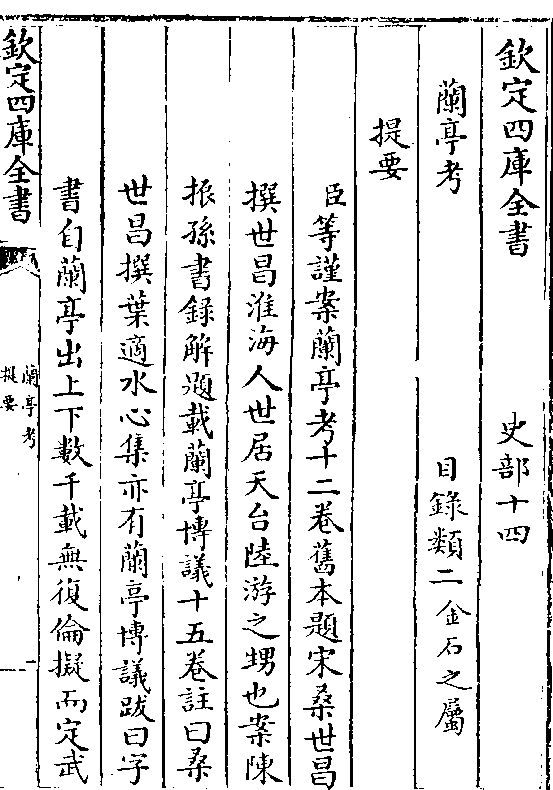 欽定四庫全書 史部十四
蘭亭考 目錄類二金石之屬
提要
臣等謹案蘭亭考十二卷舊本題宋桑世昌
撰世昌淮海人世居天台陸游之甥也案陳
振孫書錄解題載蘭亭博議十五卷註曰桑
世昌撰葉適水心集亦有蘭亭博議跋曰字
書自蘭亭出上下數千載無復倫擬而定武
欽定四庫全書
蘭亭考
提要
一